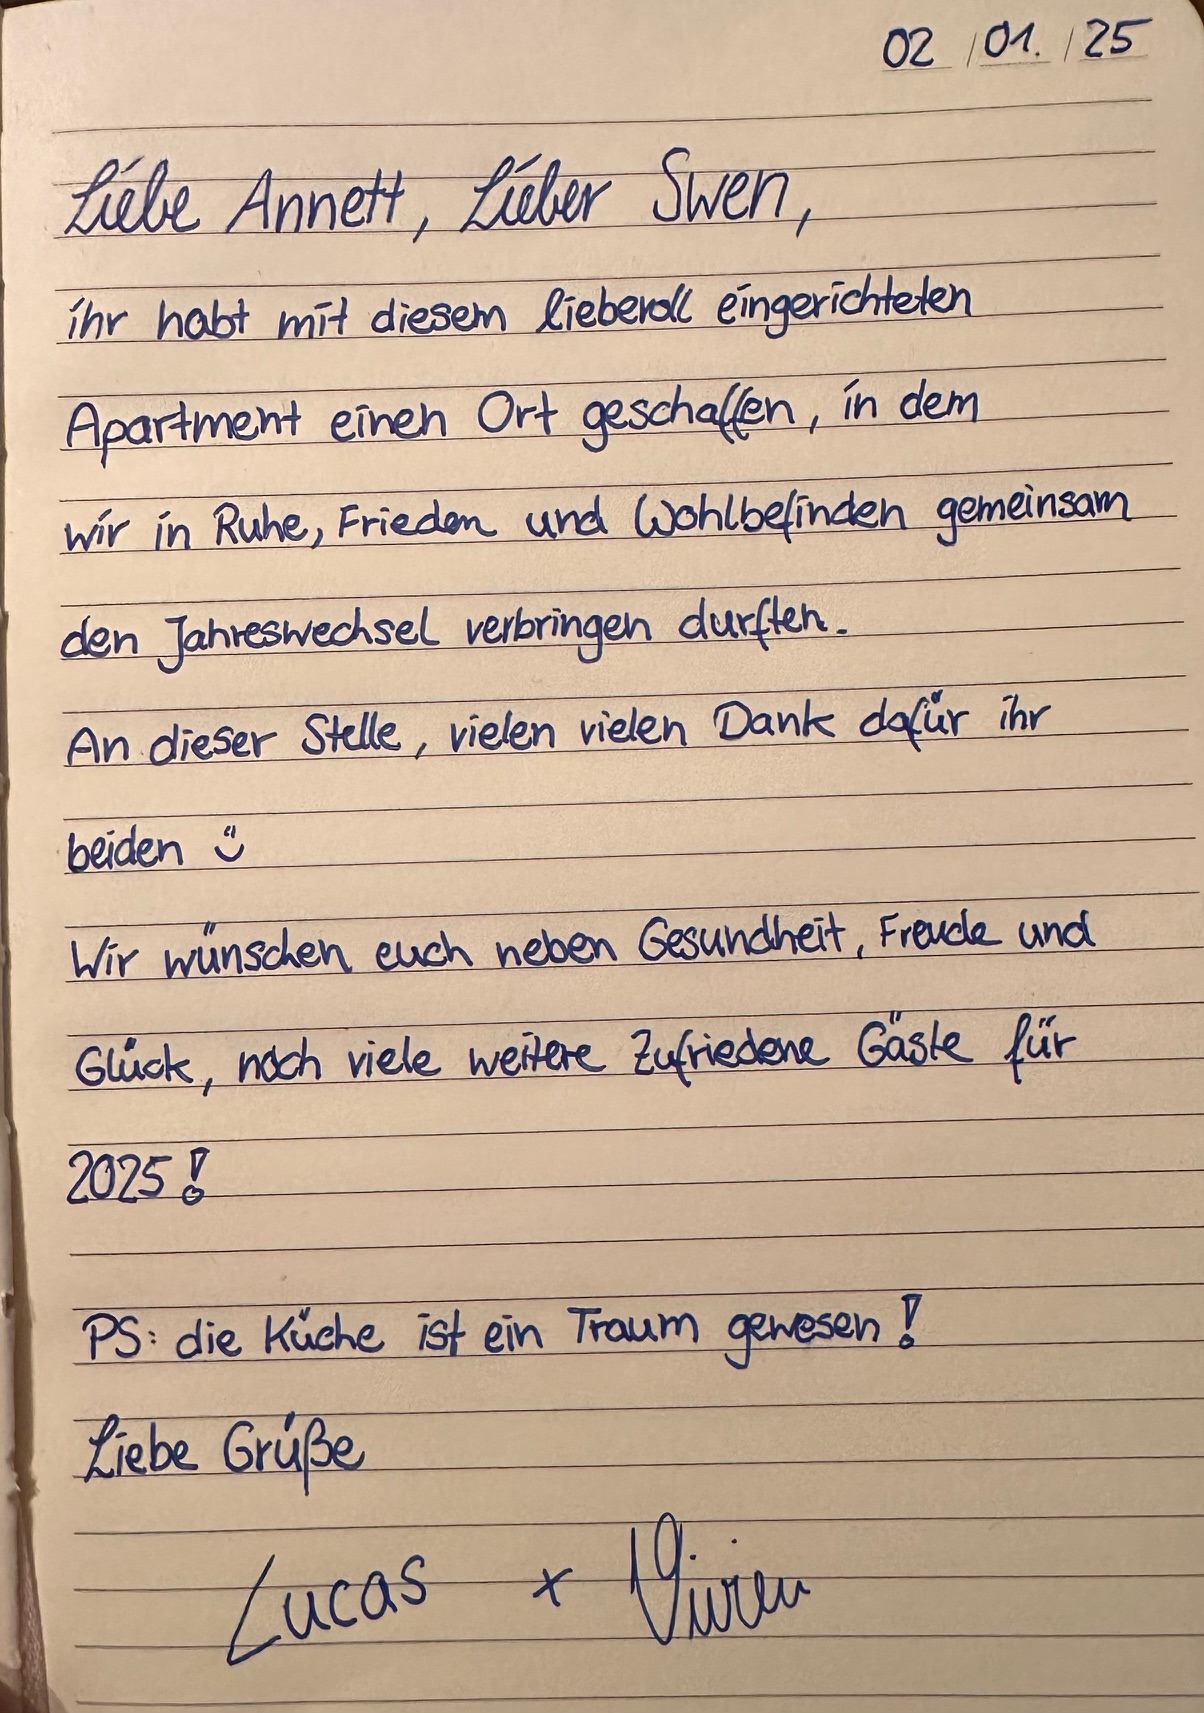 02 / 01. / 25
Liebe Annett, Lieber Swen,
ihr habt mit diesem liebevoll eingerichteten
Apartment einen Ort geschaffen, in dem
wir in Ruhe, Frieden und Wohlbefinden gemeinsam
den Jahreswechsel verbringen durften.
An dieser Stelle, vielen vielen Dank dafür ihr
beiden ü
Wir wünschen euch neben Gesundheit, Freude und
Glück, noch viele weitere Zufriedene Gäste für
2025!
PS: die Küche ist ein Traum gewesen!
Liebe Grüße
Lucas + Vivien